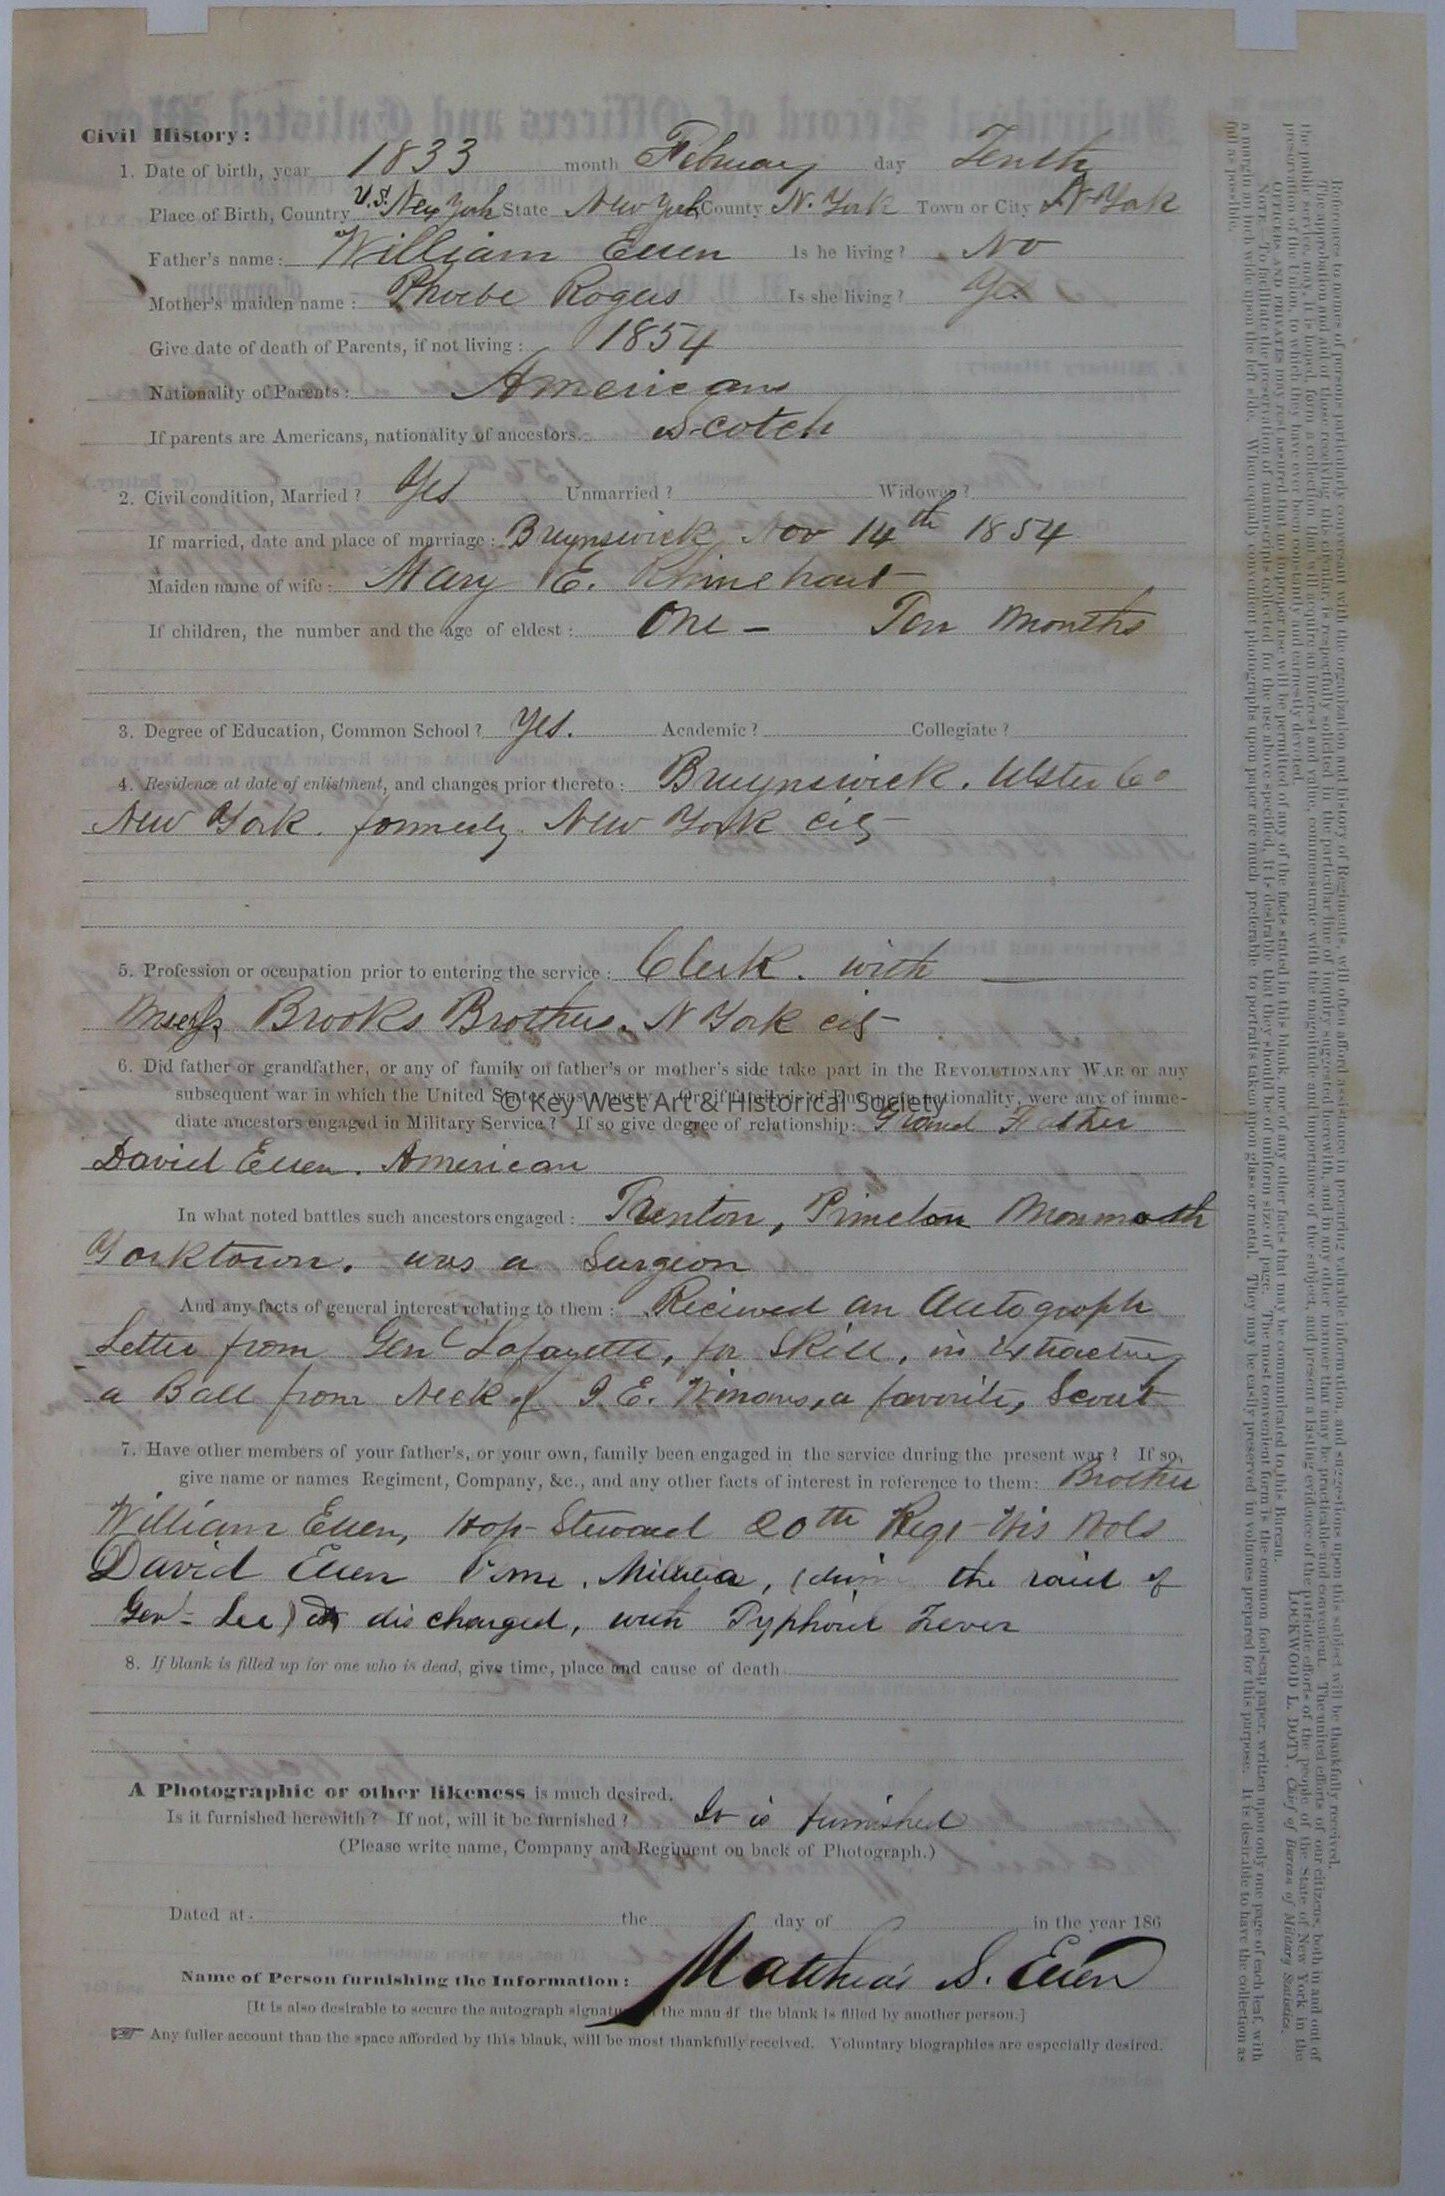 Civil History:
1. Date of birth, year 1833 month February day Tenth
Place of Birth, Country U.S. New York State New York County N. York Town or City N York
Father's name: William Euen Is he living? No
Mother's maiden name: Phoebe Rogers Is she living? Yes
Give date of death of Parents, if not living: 1854
Nationality of Parents: Americans
If parents are Americans, nationality of ancestors. Scotch
2. Civil condition, Married? Yes Unmarried? Widower?
If married, date and place of marriage: Bruynswick Nov 14th 1854
Maiden name of wife: Mary E. Rhinehart
If children, the number and the age of eldest: One - Ten Months
3. Degree of Education, Common School? Yes. Academic? Collegiate?
4. Residence at date of enlistment, and changes prior thereto: Bruynswick. Ulster Co
New York. formerly New York City
5. Profession or occupation prior to entering the service: Clerk. with
Messrs Brooks Brothers. N York City
6. Did father or grandfather, or any of family on father's or mother's side take part in the Revolutionary War or any
subsequent war in which the United States was a party? Or if family is of European nationality, were any of imme-
© Key West Art & Historical Society
diate ancestors engaged in Military Service? If so give degree of relationship: Grand Father
David Euen. American
In what noted battles such ancestors engaged: Trenton, Princeton Monmouth
Yorktown. was a Surgeon
And any facts of general interest relating to them: Recieved an Autograph
Letter from Genl Lafayette, for Skill, in Extracting
a Ball from Neck of I. E. Winans, a favorite, Scout
7. Have other members of your father's, or your own, family been engaged in the service during the present war? If so,
give name or names Regiment, Company, &c., and any other facts of interest in reference to them: Brother
William Euen, Hop- Steward 20th Regt Wis Vols
David Euen Penn. Militia, ( the raid of
Genl- Lee) discharged, with Typhoid Fever
8. If blank is filled up for one who is dead, give time, place and cause of death
A Photographic or other likeness is much desired.
Is it furnished herewith? If not, will it be furnished? It is furnished
(Please write name, Company and Regiment on back of Photograph.)
Dated at the day of in the year 186
Name of Person furnishing the Information: Matthias S. Euen
[It is also desirable to secure the autograph signature the man if the blank is filled by another person.]
☞ Any fuller account than the space afforded by this blank, will be most thankfully received. Voluntary biographies are especially desired.
References to names of persons particularly conversant with the organization and history of Regiments, will often afford assistance in procuring valuable information, and suggestions upon this subject will be thankfully received.
The approbation and aid of those receiving this circular, is respectfully solicited in the particular line of inquiry suggested herewith, and in any other manner that may be practicable and convenient. The united efforts of our citizens, both in and out of
the public service, may, it is hoped, form a collection that will acquire an interest and value, commensurate with the magnitude and importance of the subject, and present a lasting evidence of the patriotic efforts of the people of the State of New York in the
preservation of the Union, to which they have ever been constantly and earnestly devoted. LOCKWOOD L. DOTY, Chief of Bureau of Military Statistics.
Officers and privates may rest assured that no improper use will be permitted of any of the facts stated in this blank, nor of any other facts that may be communicated to this Bureau.
Note.—To facilitate the preservation of manuscripts collected for the use above specified, it is desirable that they should be of uniform size of page. The most convenient form is the common foolscap paper, written upon only one page of each leaf, with
a margin an inch wide upon the left side. When equally convenient photographs upon paper are much preferable to portraits taken upon glass or metal. They may be easily preserved in volumes prepared for this purpose. It is desirable to have the collection as
full as possible.